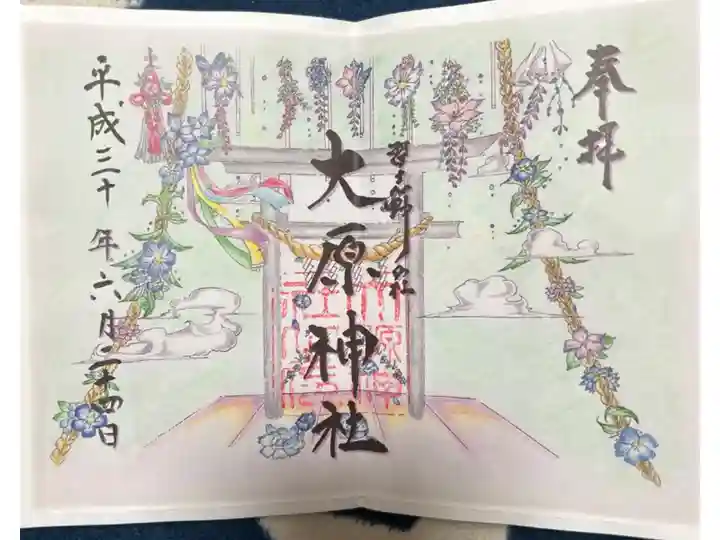 奉拝
習志野の社
大原神社
平成三十年六月二十四日